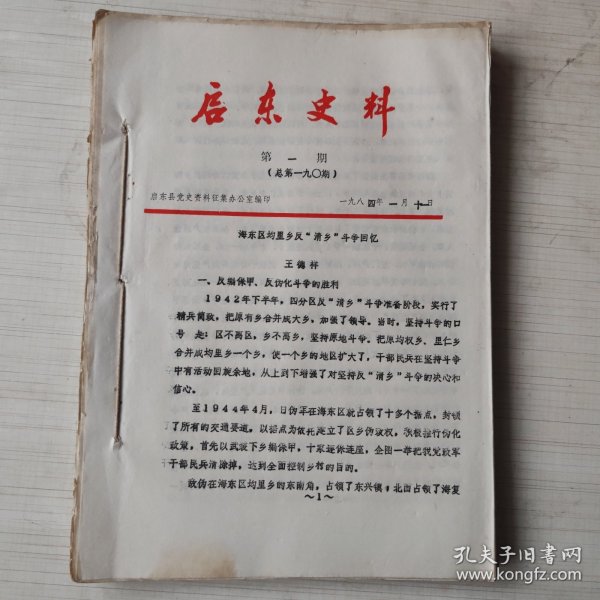 启东史料
第一期
（总第一九〇期）
启东县党史资料征集办公室编印 一九八四年一月十一日
海东区均里乡反“清乡”斗争回忆
王德祥
一、反编保甲、反伪化斗争的胜利
1942年下半年，四分区反“清乡”斗争准备阶段，实行了
精兵简政，把原有乡合并成大乡，加强了领导。当时，坚持斗争的口
号是：区不离区，乡不离乡，坚持原地斗争。把原均权乡、里仁乡
合并成均里乡一个乡，使一个乡的地区扩大了，干部民兵在坚持斗争
中有活动回旋余地，从上到下增强了对坚持反“清乡”斗争的决心和
信心。
至1944年4月，日伪军在海东区就占领了十多个据点，封锁
了所有的交通要道，以据点为依托建立了区乡伪政权，积极推行伪化
政策，首先以武装下乡编保甲，十家连保连座，企图一举把我党政军
干部民兵清除掉，达到全面控制乡村的目的。
敌伪在海东区均里乡的东南角，占领了东兴镇；北面占领了海复
～1～
孔夫子旧书网
www.kongfz.com